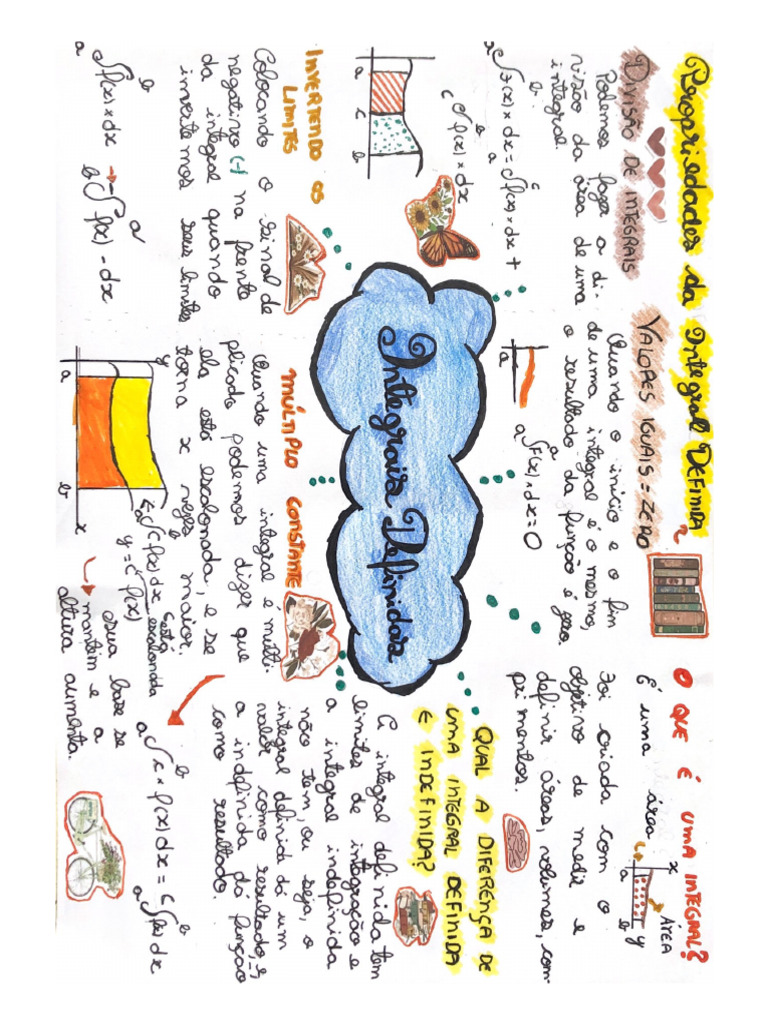 Propriedades da Integral DEFINIDA
DIVISÃO DE INTEGRAIS
Podemos fazer a di-
visão da área de uma
integral.
a∫b f(x) × dx = a∫c f(x) × dx +
c∫b f(x) × dx
a c b
VALORES IGUAIS = ZERO
Quando o início e o fim
de uma integral é o mesmo,
o resultado da função é zero.
a
a∫a f(x) × dx = 0
O QUE É UMA INTEGRAL?
É uma área
x
a b
y
ÁREA
Foi criada com o
objetivo de medir e
definir áreas, volumes, com-
primentos.
Integrais Definidas
INVERTENDO OS
LIMITES
Colocando o sinal de
negativo (-) na frente
da integral quando
invertemos seus limites
a∫b f(x) × dx → -b∫a f(x) - dx
MÚLTIPLO CONSTANTE
Quando uma integral é multi-
plicada podemos dizer que
ela esta escalonada, e se
torna x vezes maior
y
a b x
a∫b c f(x) dx
y = c f(x)
escalonada
sua base se
mantém e a
altura aumenta.
a∫b c × f(x) dx = c a∫b f(x) dx
QUAL A DIFERENÇA DE
UMA INTEGRAL DEFINIDA
E INDEFINIDA?
A integral definida tem
limites de integração e
a integral indefinida
não tem, ou seja, o
integral definida dá um
valor como resultado, e
a indefinida dá função
como resultado.